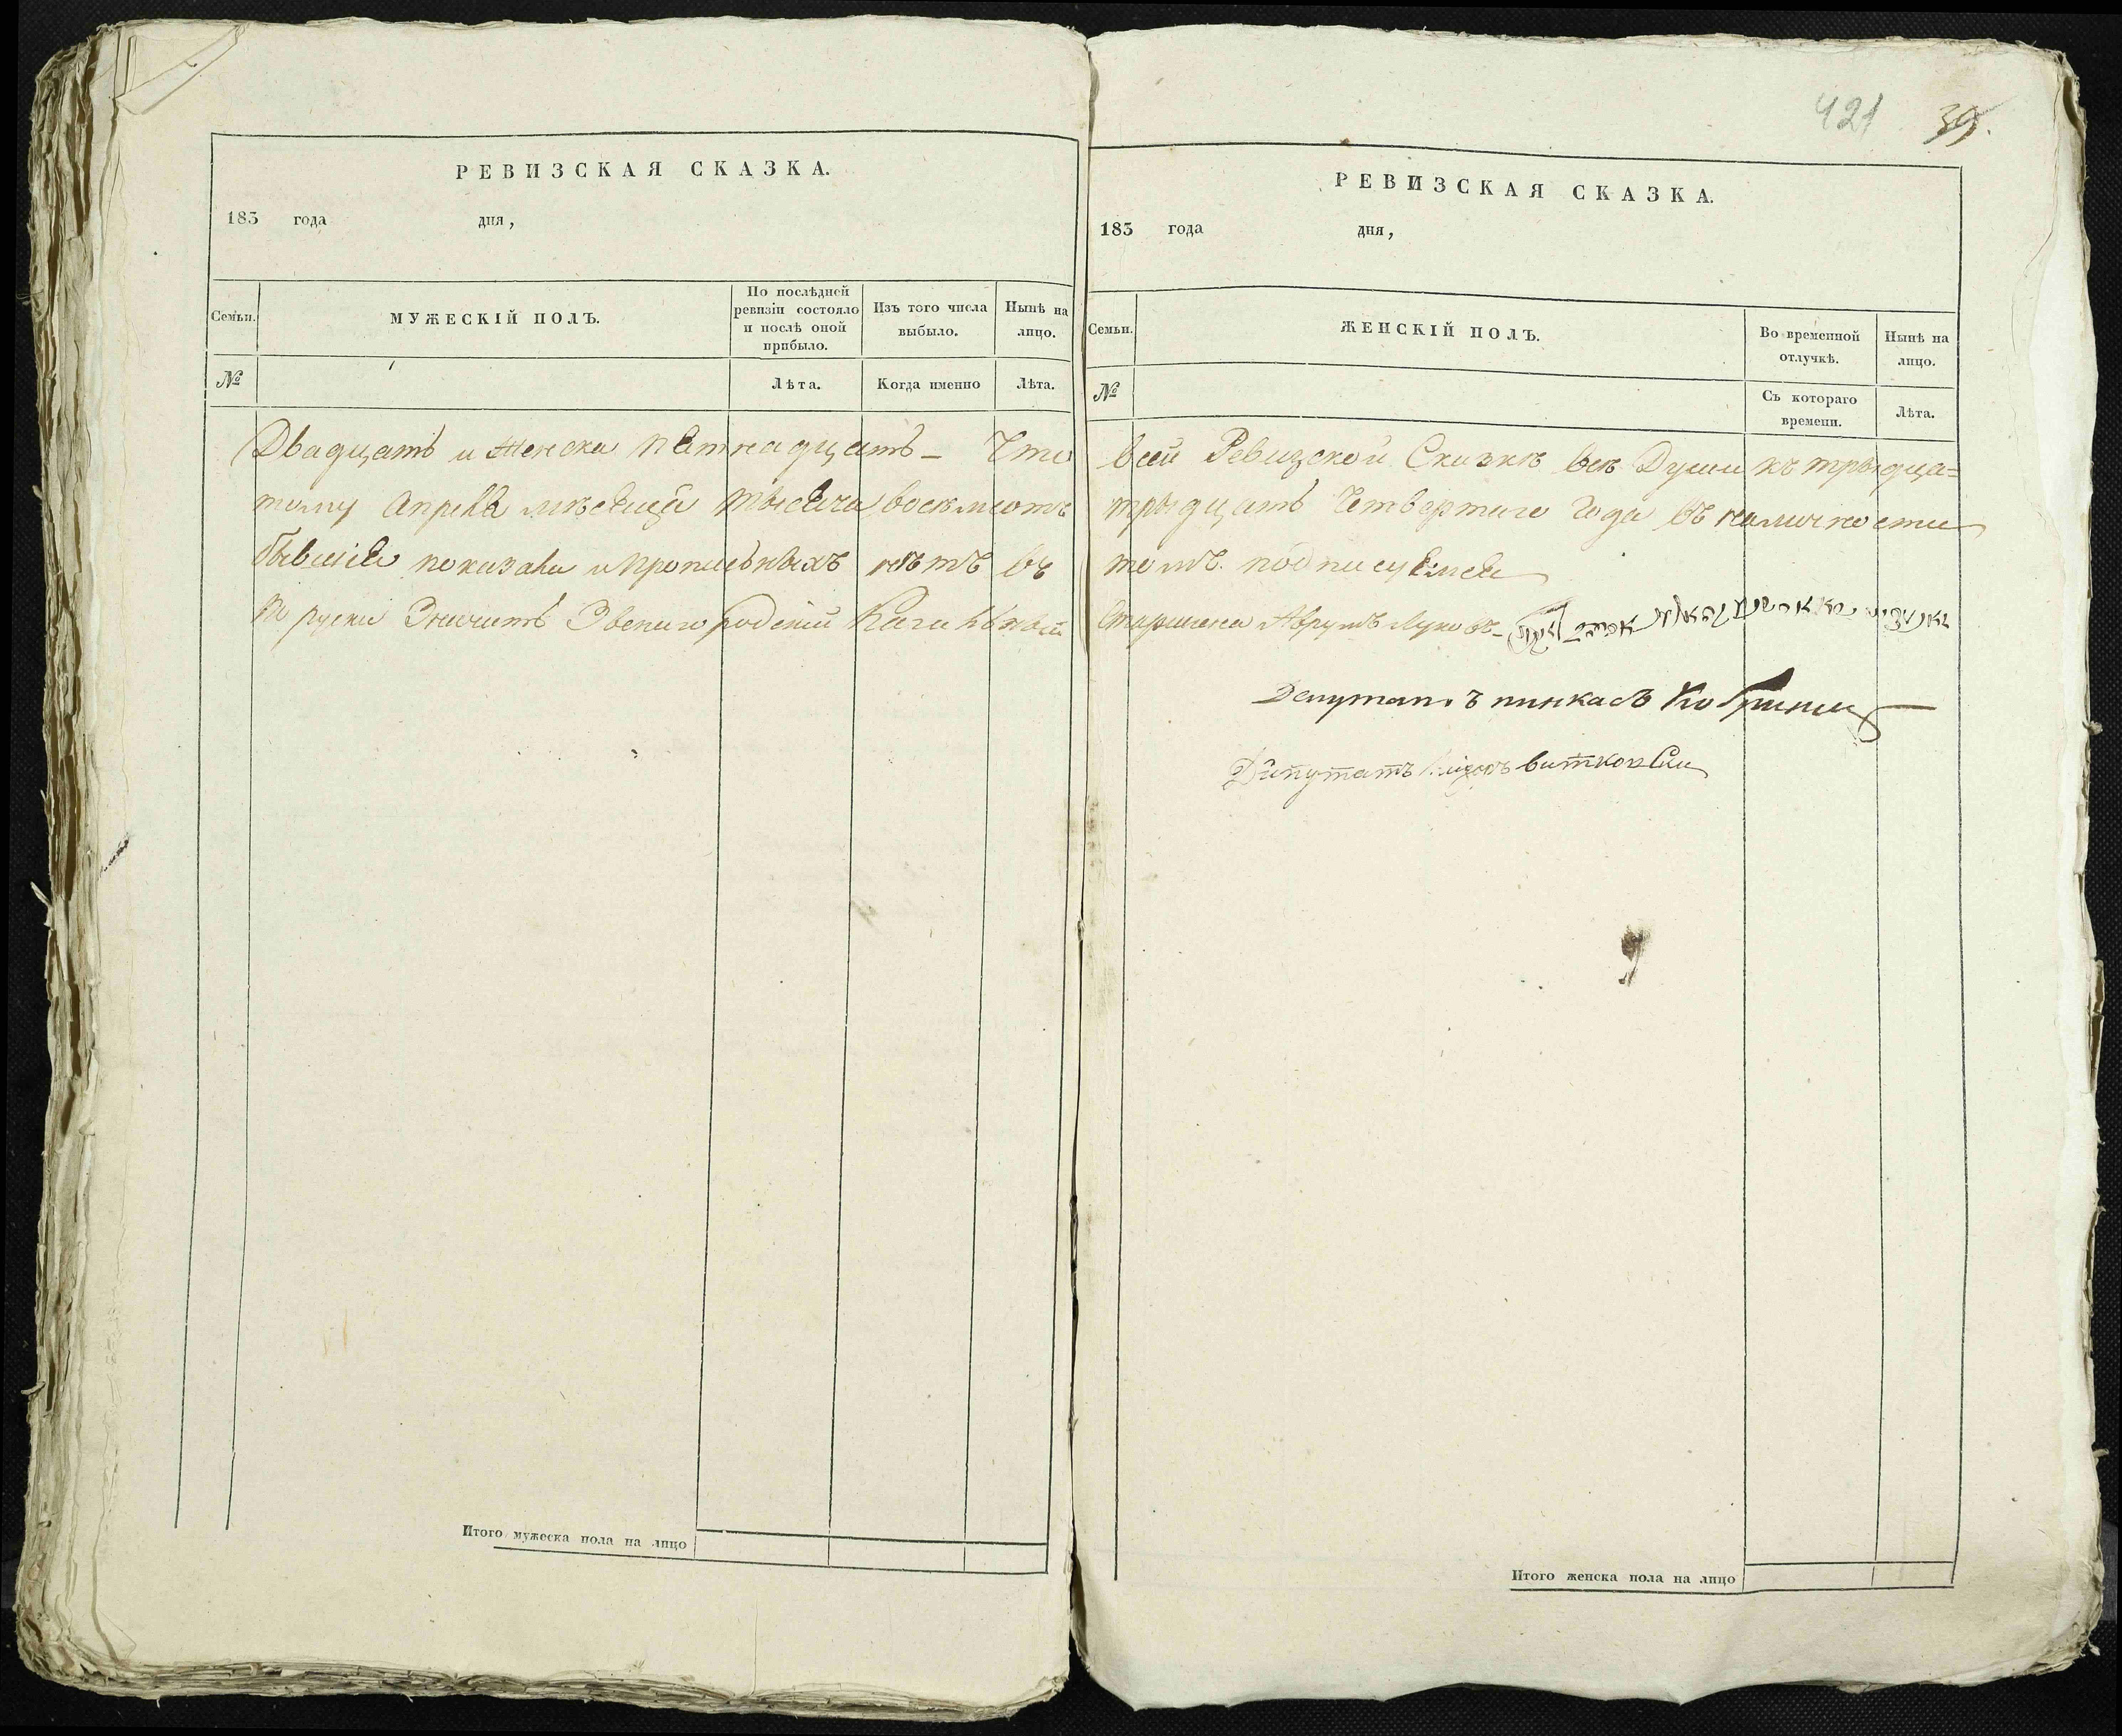 РЕВИЗСКАЯ СКАЗКА.
183 года дня,
Семьи.
МУЖЕСКІЙ ПОЛЪ.
По послѣдней
ревизіи состояло
и послѣ оной
прибыло.
Изъ того числа
выбыло.
Нынѣ на
лицо.
№
Лѣта.
Когда именно
Лѣта.
Двадцать и женска петнадцать – Что
тому апреля месяца тысеча восемьсотъ
бывшіе показани и прописныхъ нѣтъ въ
По руски значитъ Звенигородскій Кагальный
Итого мужеска пола на лицо
421 39.
РЕВИЗСКАЯ СКАЗКА.
183 года дня,
Семьи.
ЖЕНСКІЙ ПОЛЪ.
Во временной
отлучкѣ.
Нынѣ на
лицо.
№
Съ котораго
времени.
Лѣта.
всей Ревизской Сказкѣ всѣ Души къ трыдца=
трыдцать Четвертаго Года въ наличности
томъ подписуемся
Старшина Аврумъ
Депутатъ пинкасъ
Дипутатъ витковски
Итого женска пола на лицо